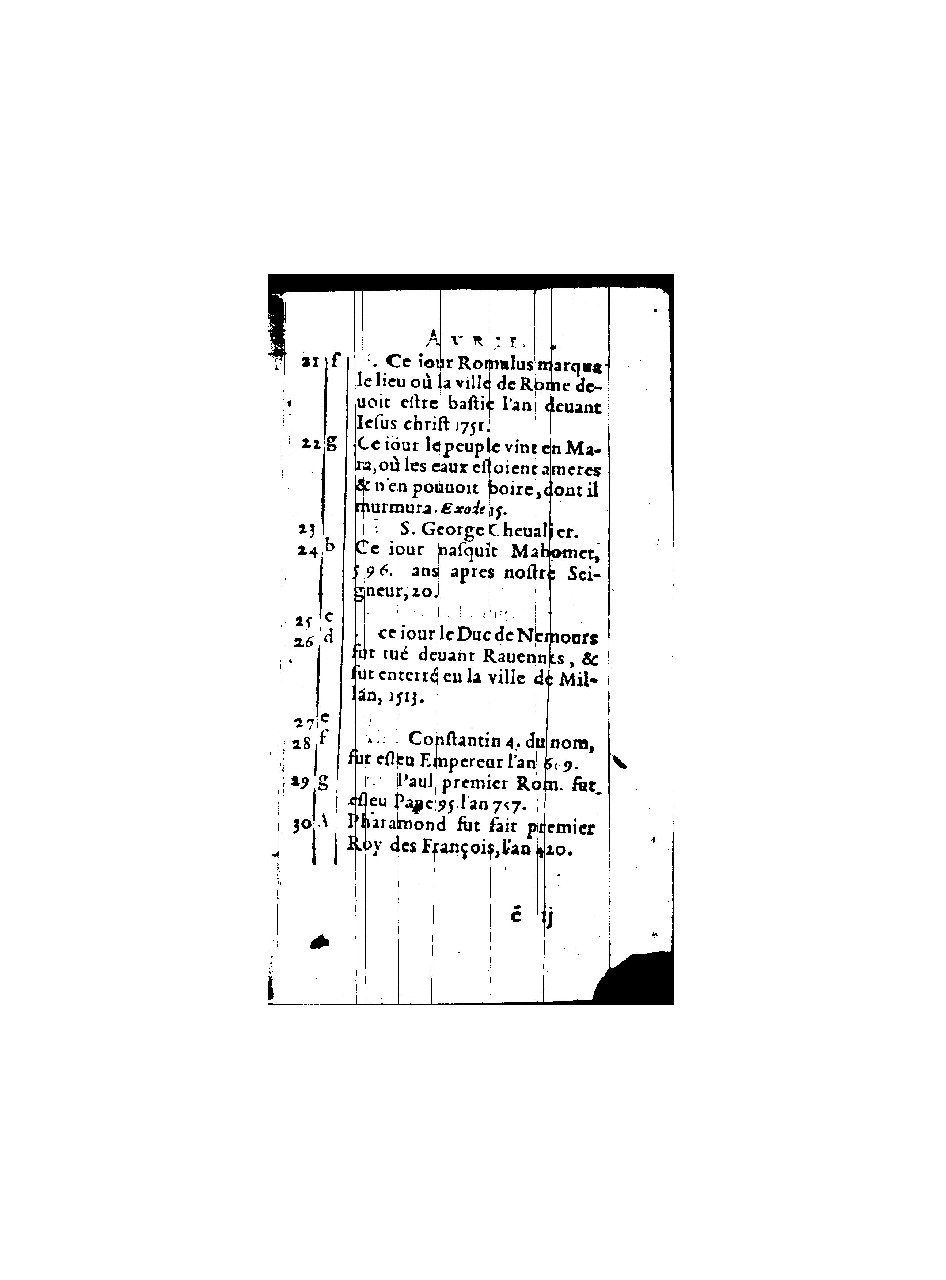 AVRIL.
21 f Ce iour Romulus marqua
le lieu où la ville de Rome de-
uoit eſtre baſtie l'an deuant
Ieſus chriſt 1751.
22 g Ce iour le peuple vint en Ma-
ra, où les eaux eſtoient ameres
& n'en pouuoit boire, dont il
murmura. Exode 15.
23 S. George Cheualier.
24 b Ce iour naſquit Mahomet,
596. ans apres noſtre Sei-
gneur, 20.
25 c
26 d ce iour le Duc de Nemours
fut tué deuant Rauennes, &
fut enterré eu la ville de Mil-
lan, 1513.
27 e
28 f Conſtantin 4. du nom,
fut eſleu Empereur l'an
29 g Paul premier Rom. fut
eſleu Pape 95. l'an 757.
30 A Pharamond fut fait premier
Roy des François, l'an 420.
ē ij